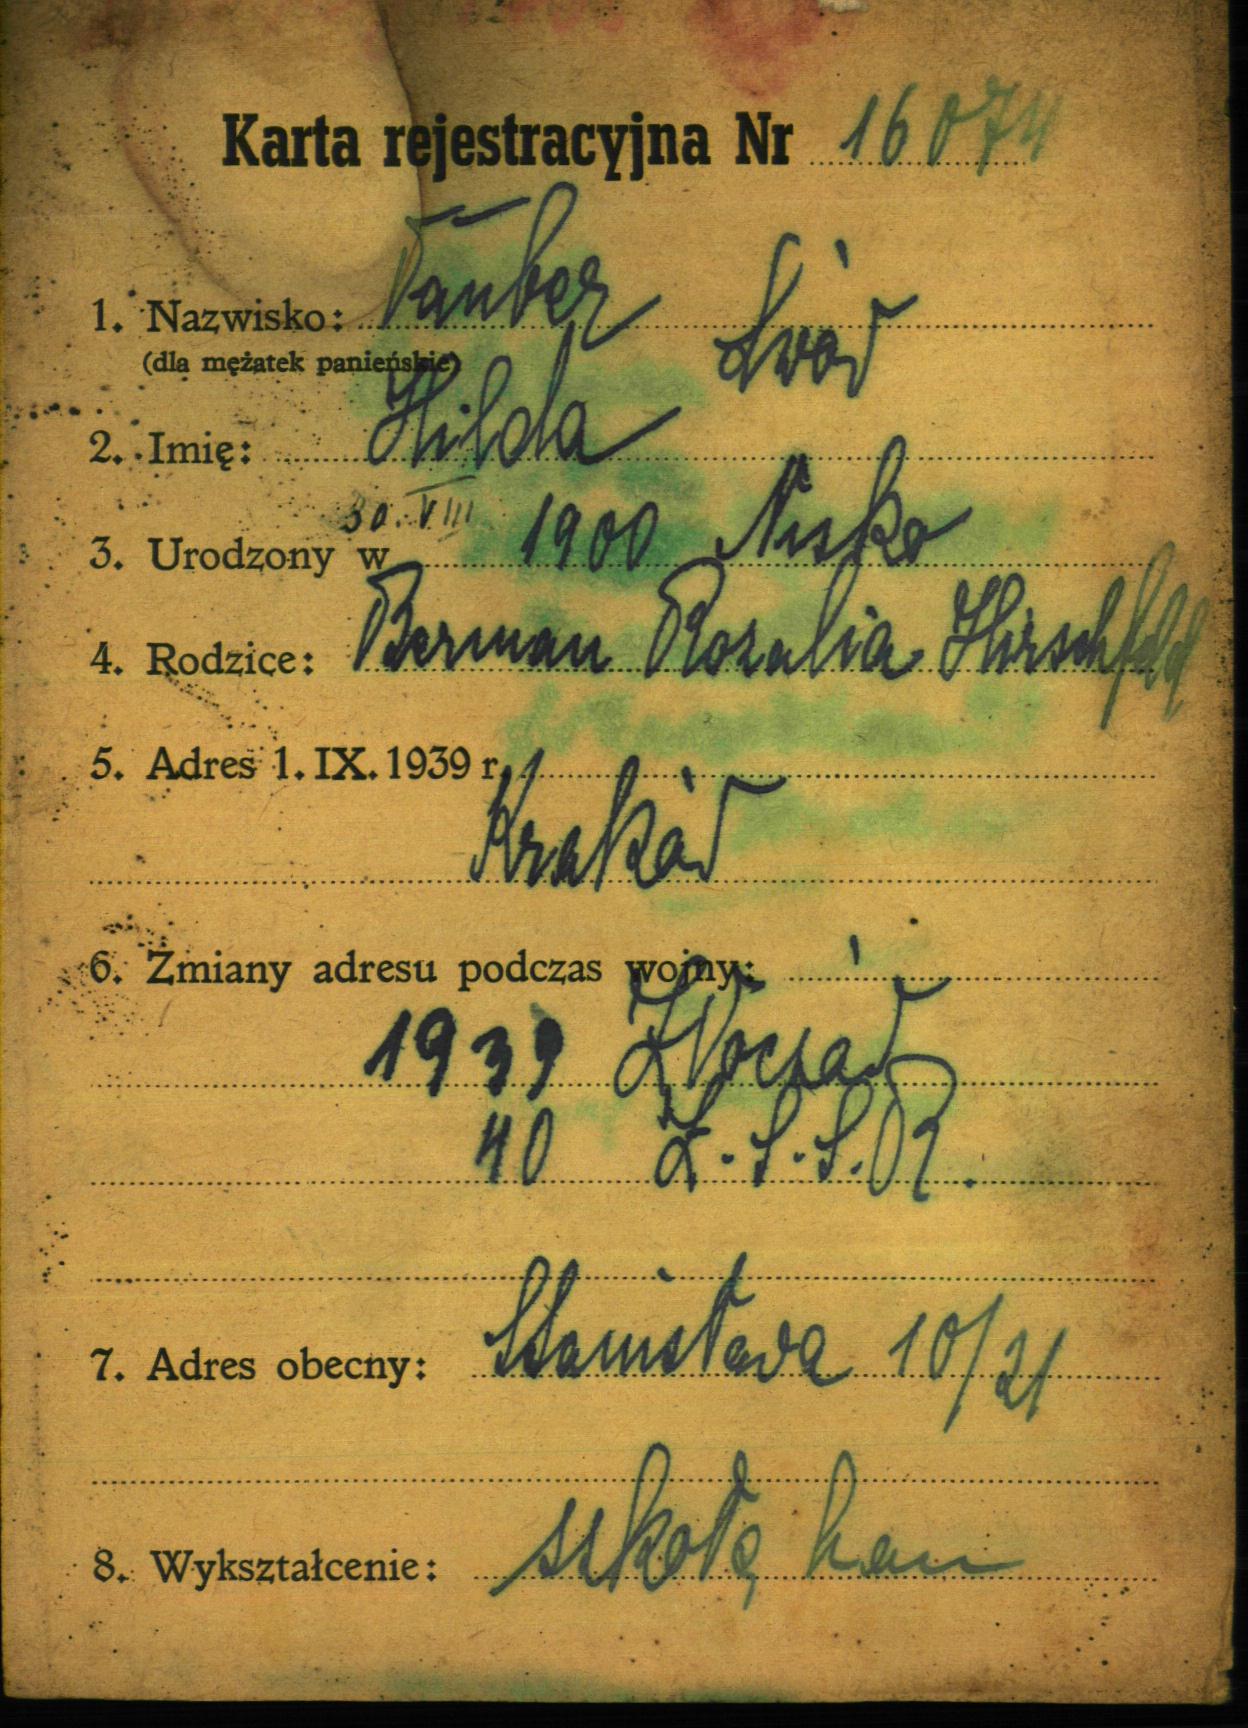 Karta rejestracyjna Nr 16074
1. Nazwisko: Tauber Lwów
(dla mężatek panieńskie)
2. Imię: Hilda
30.VIII
3. Urodzony w 1900 Nisko
4. Rodzice: Berman Rozalia Hirschfeld
5. Adres 1. IX. 1939 r.
Kraków
6. Zmiany adresu podczas wojny:
1939 Złoczów
40 Z.S.S.R.
7. Adres obecny: Stanisława 10/21
8. Wykształcenie: szkołę han